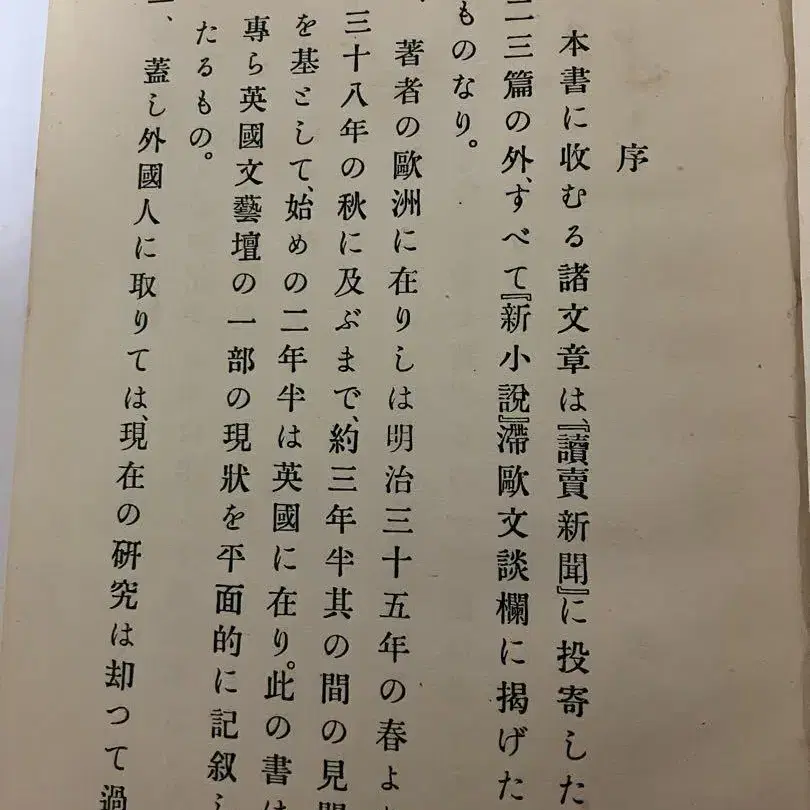 序
本書に收むる諸文章は、『讀賣新聞』に投寄した
二三篇の外、すべて『新小說』滯歐文談欄に揭げた
ものなり。
著者の歐洲に在りしは明治三十五年の春よ
三十八年の秋に及ぶまで、約三年半其の間の見
を基として、始めの二年半は英國に在り。此の書は
專ら英國文藝壇の一部の現狀を平面的に記叙し
たるもの。
一、蓋し外國人に取りては、現在の硏究は却つて過